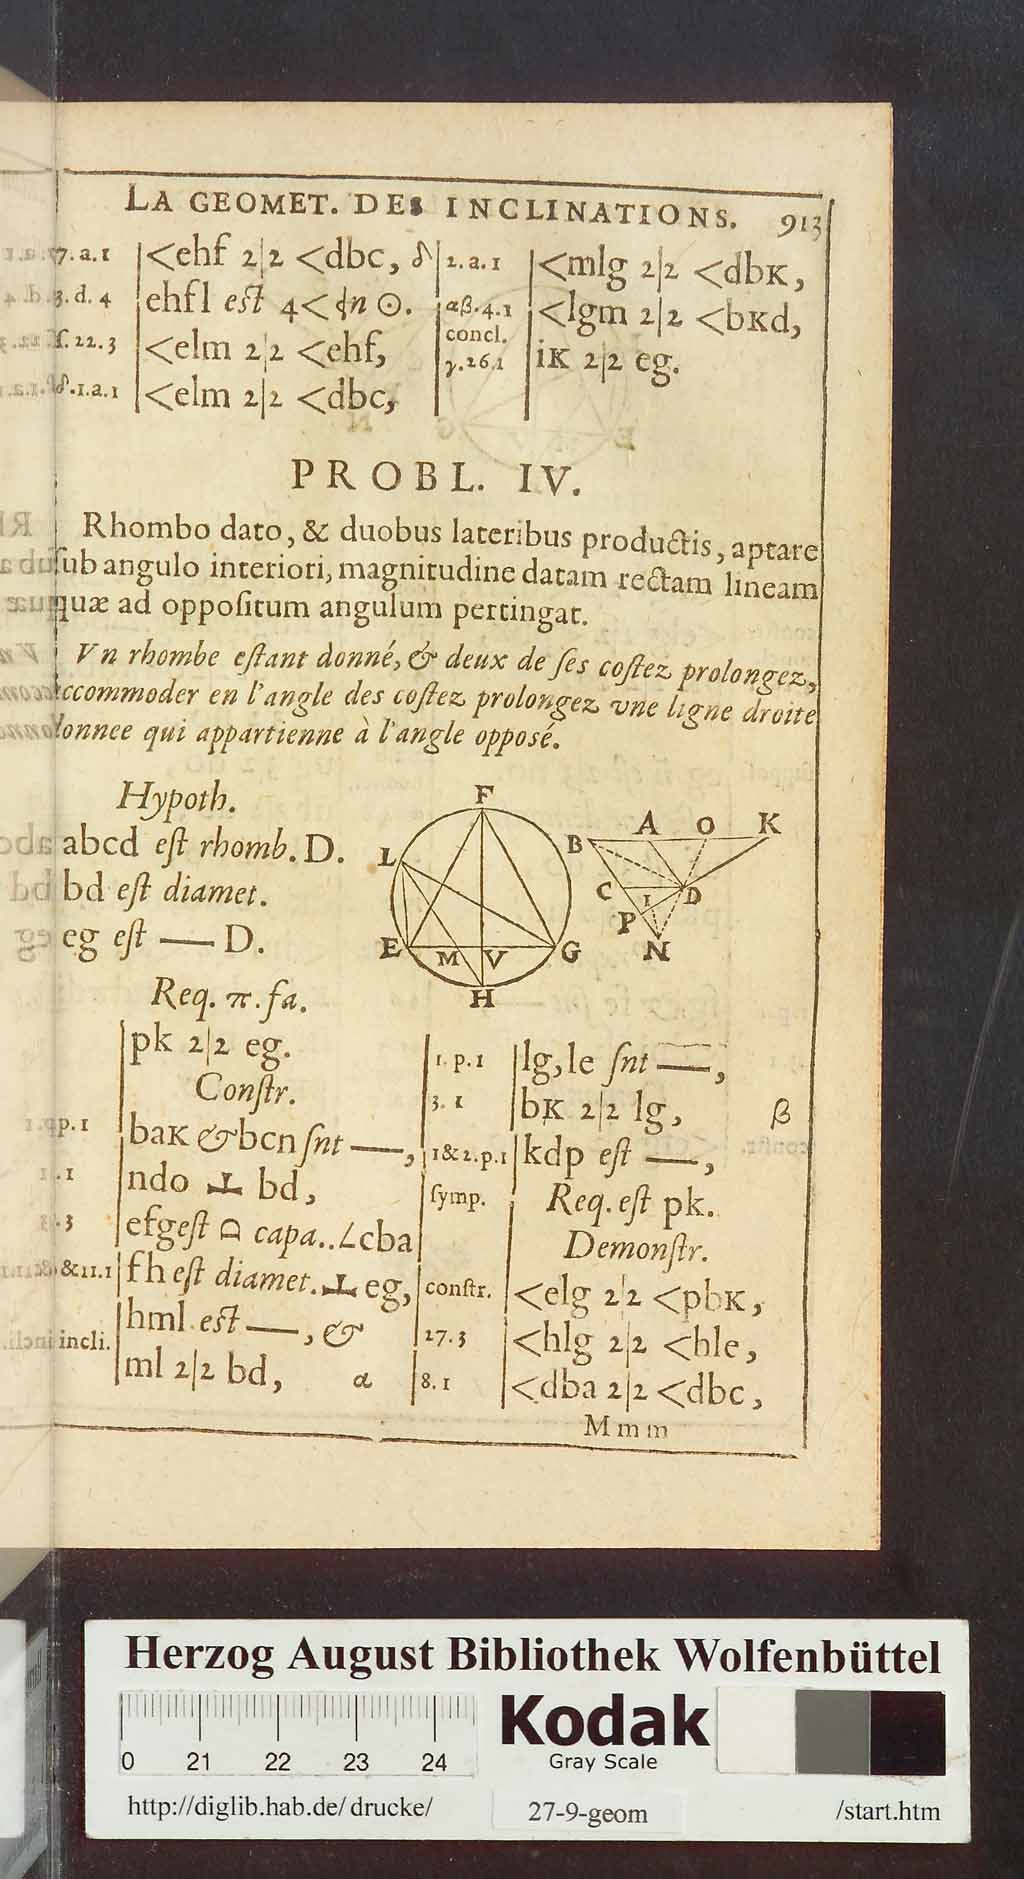 LA GEOMET. DES INCLINATIONS. 913
7. a. 1 <ehf 2|2 <dbc, δ
3. d. 4 ehfl est 4< ɖn ⊙.
f. 22. 3 <elm 2|2 <ehf,
δ. 1. a. 1 <elm 2|2 <dbc,
2. a. 1 <mlg 2|2 <dbK,
αβ. 4. 1 <lgm 2|2 <bKd,
concl.
γ. 26. 1 iK 2|2 eg.
PROBL. IV.
Rhombo dato, & duobus lateribus productis, aptare
sub angulo interiori, magnitudine datam rectam lineam
quæ ad oppositum angulum pertingat.
Vn rhombe estant donné, & deux de ses costez prolongez,
accommoder en l'angle des costez prolongez vne ligne droite
donnee qui appartienne à l'angle opposé.
Hypoth.
abcd est rhomb. D.
bd est diamet.
eg est — D.
F
L
E M V G
H
B A O K
C I D
P
N
Req. π. fa.
pk 2|2 eg.
Constr.
p. 1 baK & bcn snt —,
1 ndo ⊥ bd,
3 efg est ⌓ capa.. ∠cba
& 11. 1 fh est diamet. ⊥ eg,
hml est —, &
incli. ml 2|2 bd, α
1. p. 1 lg, le snt —,
3. 1 bK 2|2 lg, β
1 & 2. p. 1 kdp est —,
symp. Req. est pk.
Demonstr.
constr. <elg 2|2 <pbK,
27. 3 <hlg 2|2 <hle,
8. 1 <dba 2|2 <dbc,
Mmm
Herzog August Bibliothek Wolfenbüttel
0 21 22 23 24
Kodak
Gray Scale
http://diglib.hab.de/drucke/ 27-9-geom /start.htm